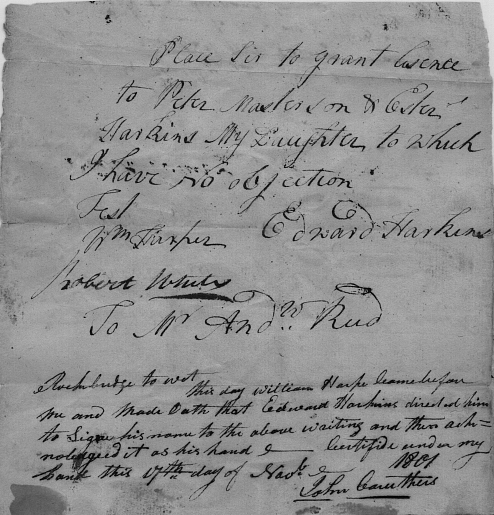 Place Sir to grant lisence
to Peter Masterson & Ester
Harkins My Daughter to which
I have no objection
Test
Wm Harper Edward Harkins
Robert White
To Mr Andw. Reid
Rockbridge to wit this day William Harpe Came before
me and Made Oath that Edward Harkins directed him
to Signe his name to the above waiting and then ack=
noledged it as his hand & Certifide under my
hand this 17th day of Novbr 1801
John Caruthers